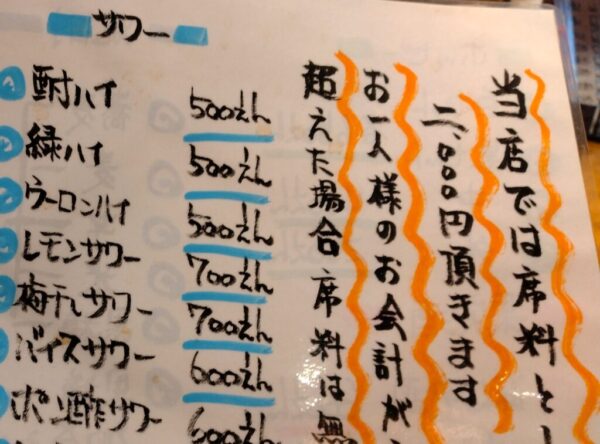 サワー
酎ハイ 500えん
緑ハイ 500えん
ウーロンハイ 500えん
レモンサワー 700えん
梅干しサワー 700えん
バイスサワー 600えん
ポン酢サワー 600えん
当店では席料と
二,000円頂きます
お一人様のお会計が
超えた場合席料は無